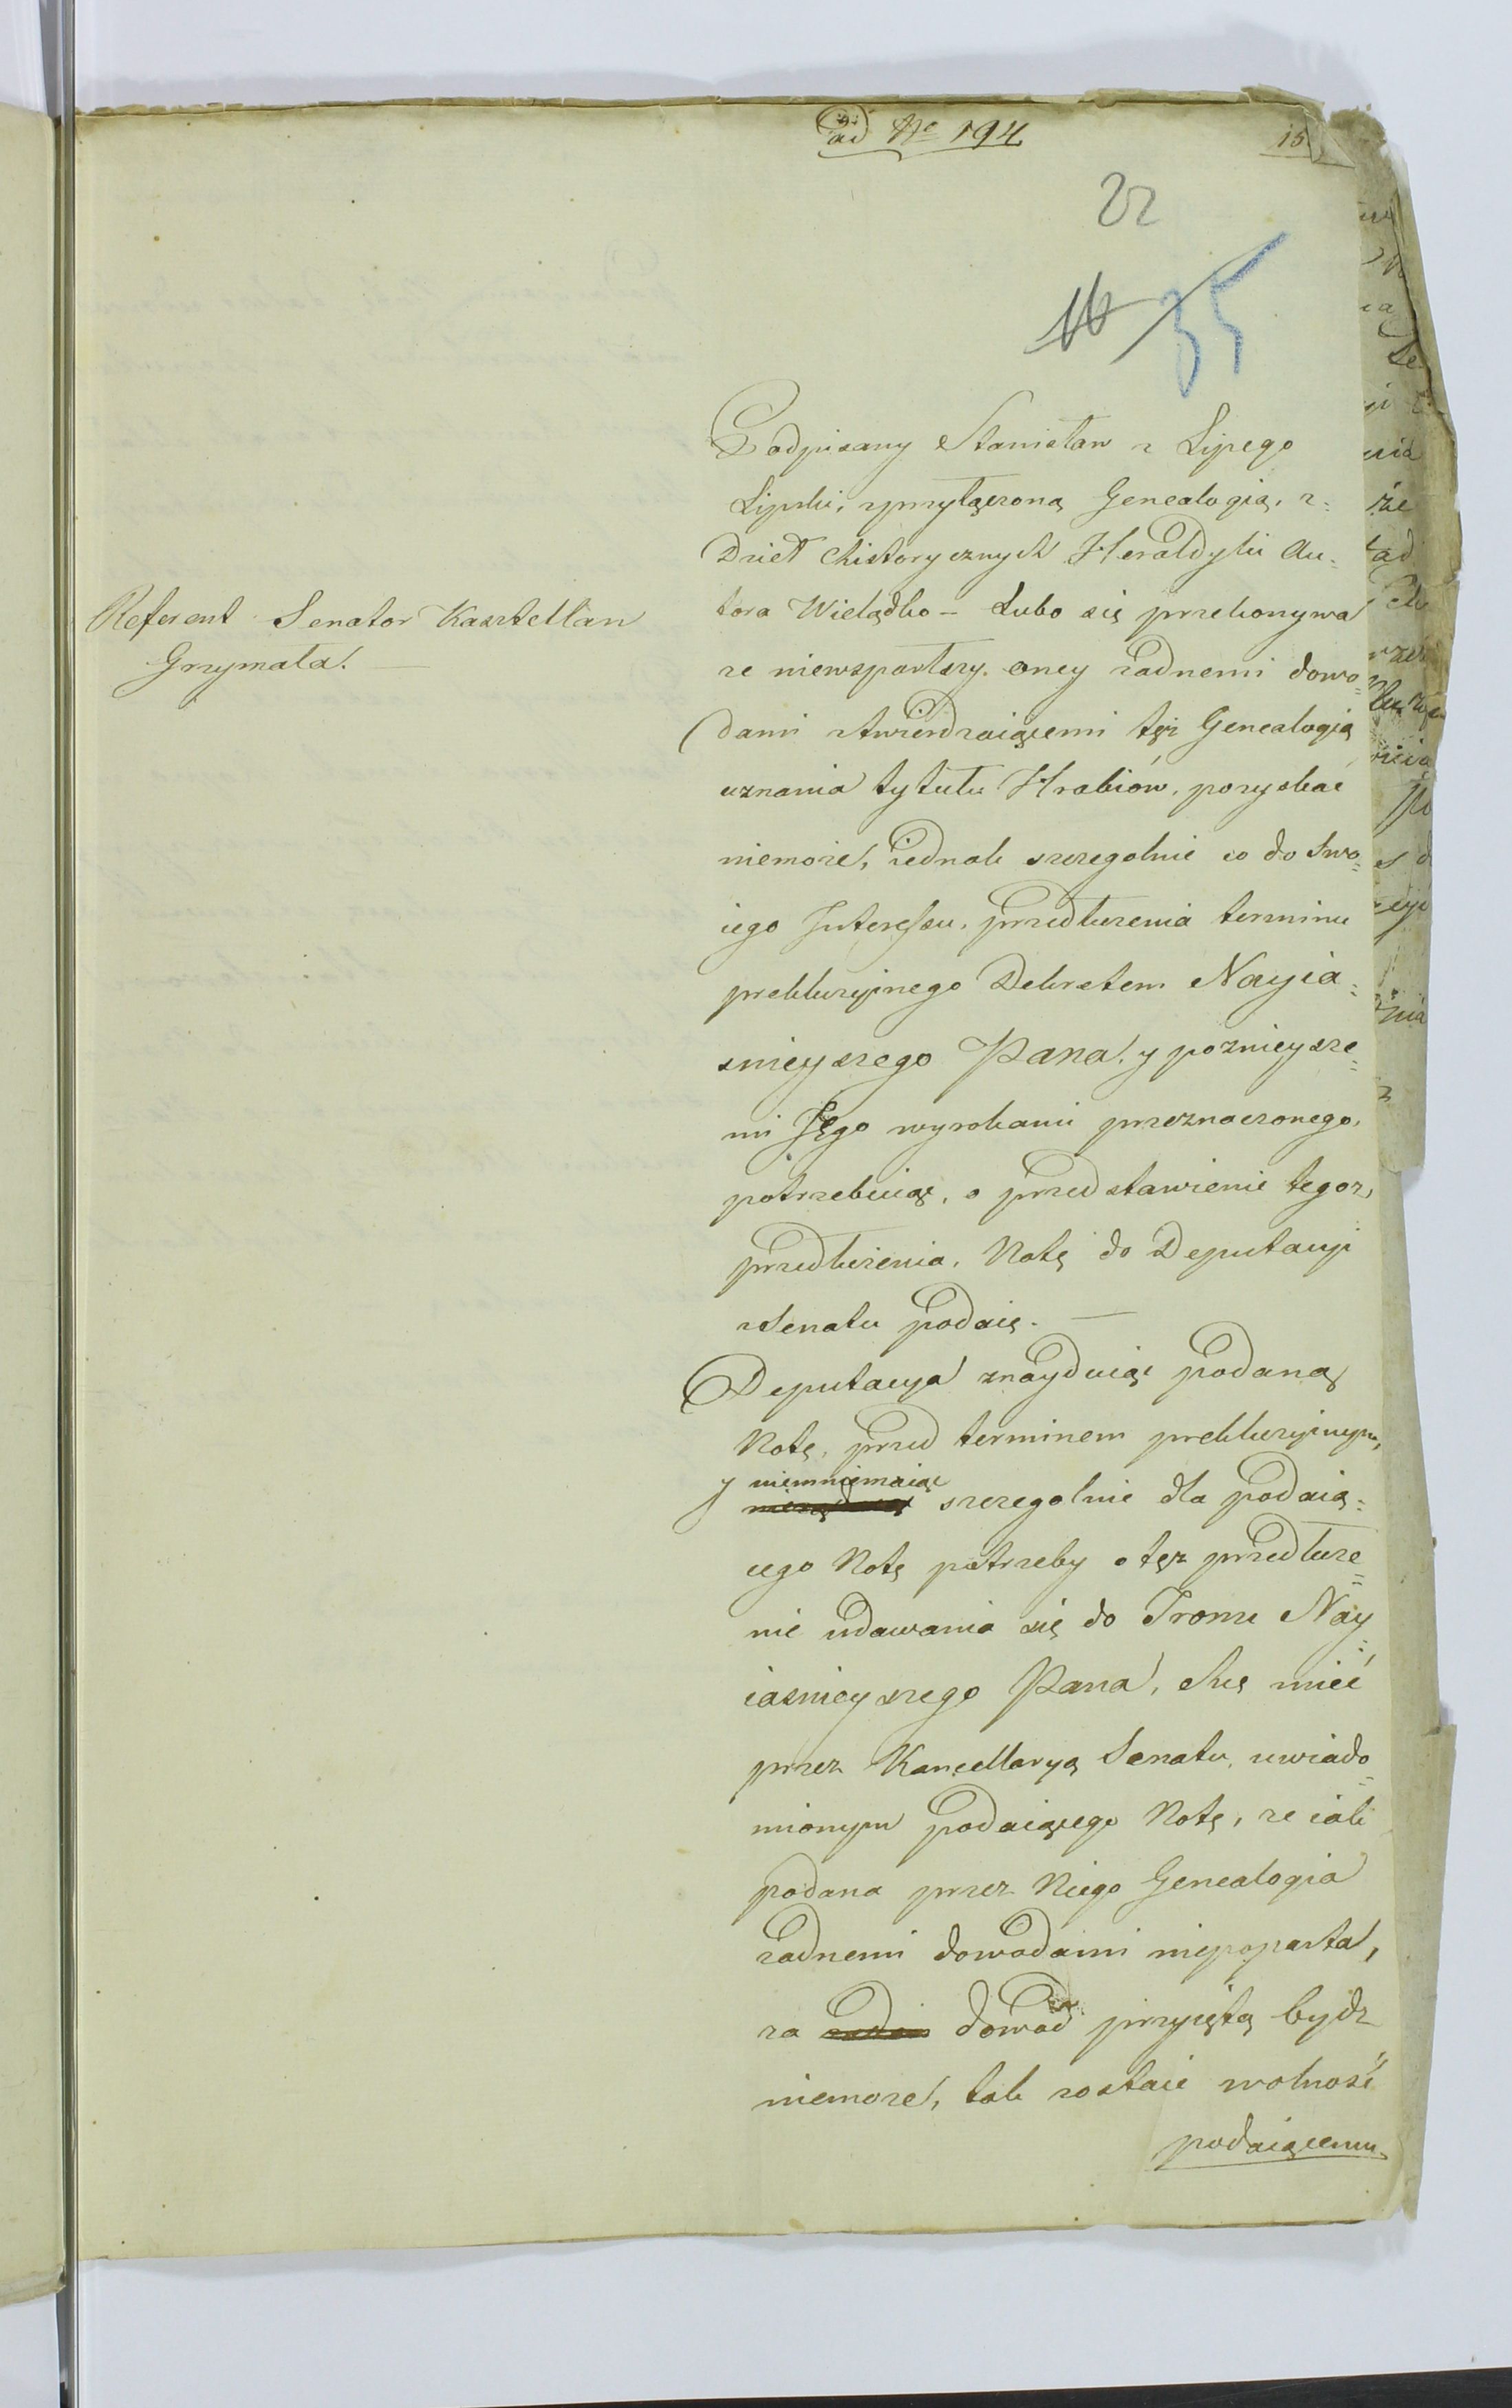 ad No 194
15
22
16 35
Referent Senator Kasztellan
Grzymała. —
Podpisany Stanisław z Lipego
Lipski, zprzyłączoną Genealogią, z=
Dzieł Historycznych Heraldyki Au=
tora Wielądko — Lubo się przekonywa
ze niewsparłszy oney żadnemi dowo=
dami stwierdzaiącemi tęż Genealogią
uznania tytułu Hrabiów, pozyskać
niemoże, iednak szczegolnie co do Swo=
iego Interessu, przedłużenia terminu
prekluzyinego Dekretem Nayia=
snieyszego Pana, y poznieysze=
mi Jego wyrokami przeznaczonego,
potrzebuiąc, o przedstawienie tegoz,
przedłużenia, Notę do Deputacyi
zSenatu podaię. —
Deputacya znayduiąc podaną
Notę, przed terminem prekluzyinym,
y niemniemaiąc
szczegolnie dla podaią=
cego Notę potrzeby o tęz przedłuże=
nie udawania się do Tronu Nay=
iasnieyszego Pana, chce mieć
przez Kancellaryą Senatu, uwiado=
mionym podaiącego Notę, ze iak
podana przez Niego Genealogia
zadnemi dowodami niepoparta,
za dowod przyiętą bydz
niemoze, tak zostaie wolność
podaiącemu